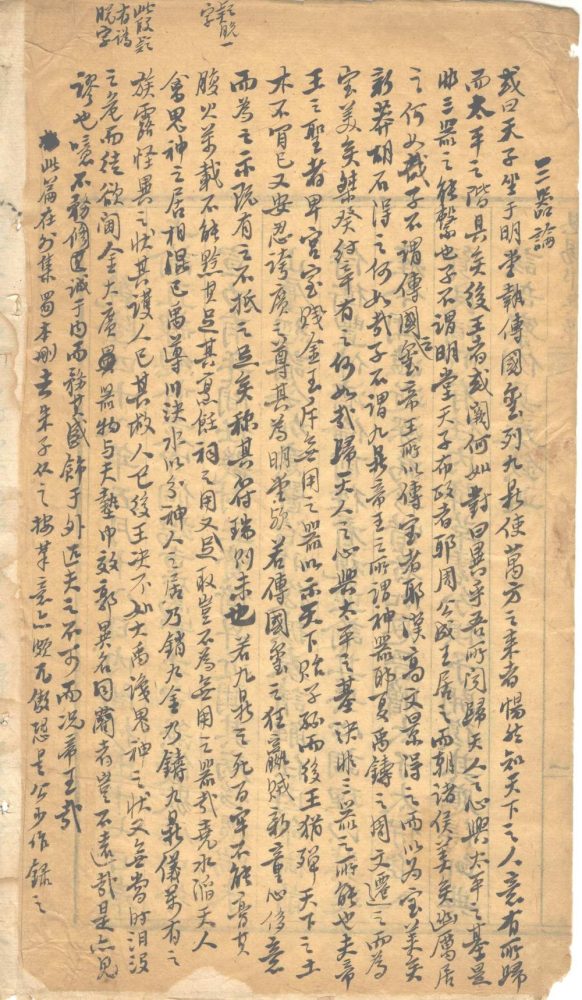 三器論
或曰天子坐于明堂執傳國璽列九鼎使萬方之來者惕然知天下之人意有所歸
而太平之階具矣後王者或闕何如對曰異乎吾所聞歸天人之心興太平之基是
非三器之能繫也子不謂明堂天子布政者耶周公成王居之而朝諸侯美矣幽厲居
之何如哉子不謂傳國璽帝王所以傳寶者耶漢高文景得之而以為寶美矣
新莽胡石得之何如哉子不謂九鼎帝王之所謂神器耶夏禹鑄之周文遷之而為
寶美矣桀癸紂辛有之何如哉歸天人之心興太平之基決非三器之所能也夫帝
王之聖者卑宮室賤金玉斥無用之器以示天下貽子孫而後王猶殫天下之土
木不肯已又安忍誇廣之尊其為明堂歟若傳國璽之狂嬴賊新童心侈意
而為之示既有之不抵之足矣稱其符瑞則未也若九鼎之死百牢不能膏其
腹火萬載不能黔其足其烹飪祠之用又足取豈不為無用之器哉堯水滔天人
禽鬼神之居相混已禹導川決水以分神人之居乃銷九金乃鑄九鼎儀萬有之
族露怪異之狀其護人已其救人已後王決不如大禹識鬼神之狀又無當時汨沒
之危而徒欲闊金大廣器物与天墊巾效郭異名同藺者豈不遠哉是亦見
謬也噫不務修其誠于內而務其盛飾于外匹夫之不可而況帝王哉
此篇在外集蜀本刪去朱子仍之按其意亦頗兀傲恐是公少作錄之
疑脫一
字
此段疑
有譌
脫字